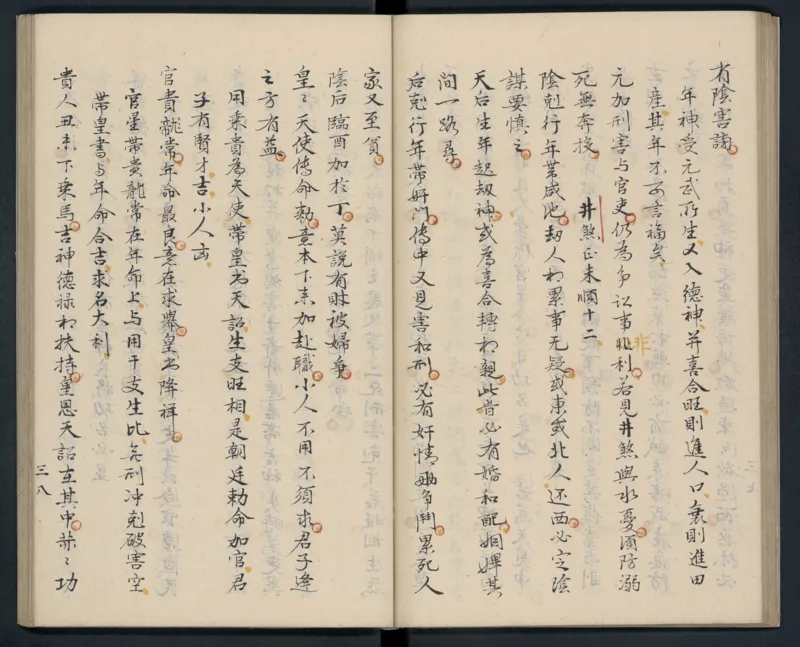 有陰害謁
年神受元武所生又入德神并喜合旺則進人口衰則進田
產其年不可言福矣
元加刑害与官吏仍為争訟事非利若見井煞與水憂須防溺
死無奔投 井煞正未順十二
陰剋行年業咸池劫人相累事无疑或東或北人还西必定陰
謀要慎之
天后生年起劫神或為喜合轉相親此皆必有婚和配姻嬋其
間一路尋
后剋行年帶奸門傳中又見害和刑必有奸情婦争鬥累死人
家又至貧
陰后臨酉加於丁莫說有財被婦争
皇々天使傳命勅意本下来加赴職小人不用不須求君子逢
之方有益
用乘貴為天使帶皇书天詔生支旺相是朝廷勅命加官君
子有賢才吉小人凶
官貴龍常年命最良意在求舉皇书降祥
官星帶貴龍常在年命上与用干支生比無刑冲剋破害空
帶皇書与年命合吉求名大利
貴人丑未下乘馬吉神德禄相扶持皇恩天詔在其中華々功
三八